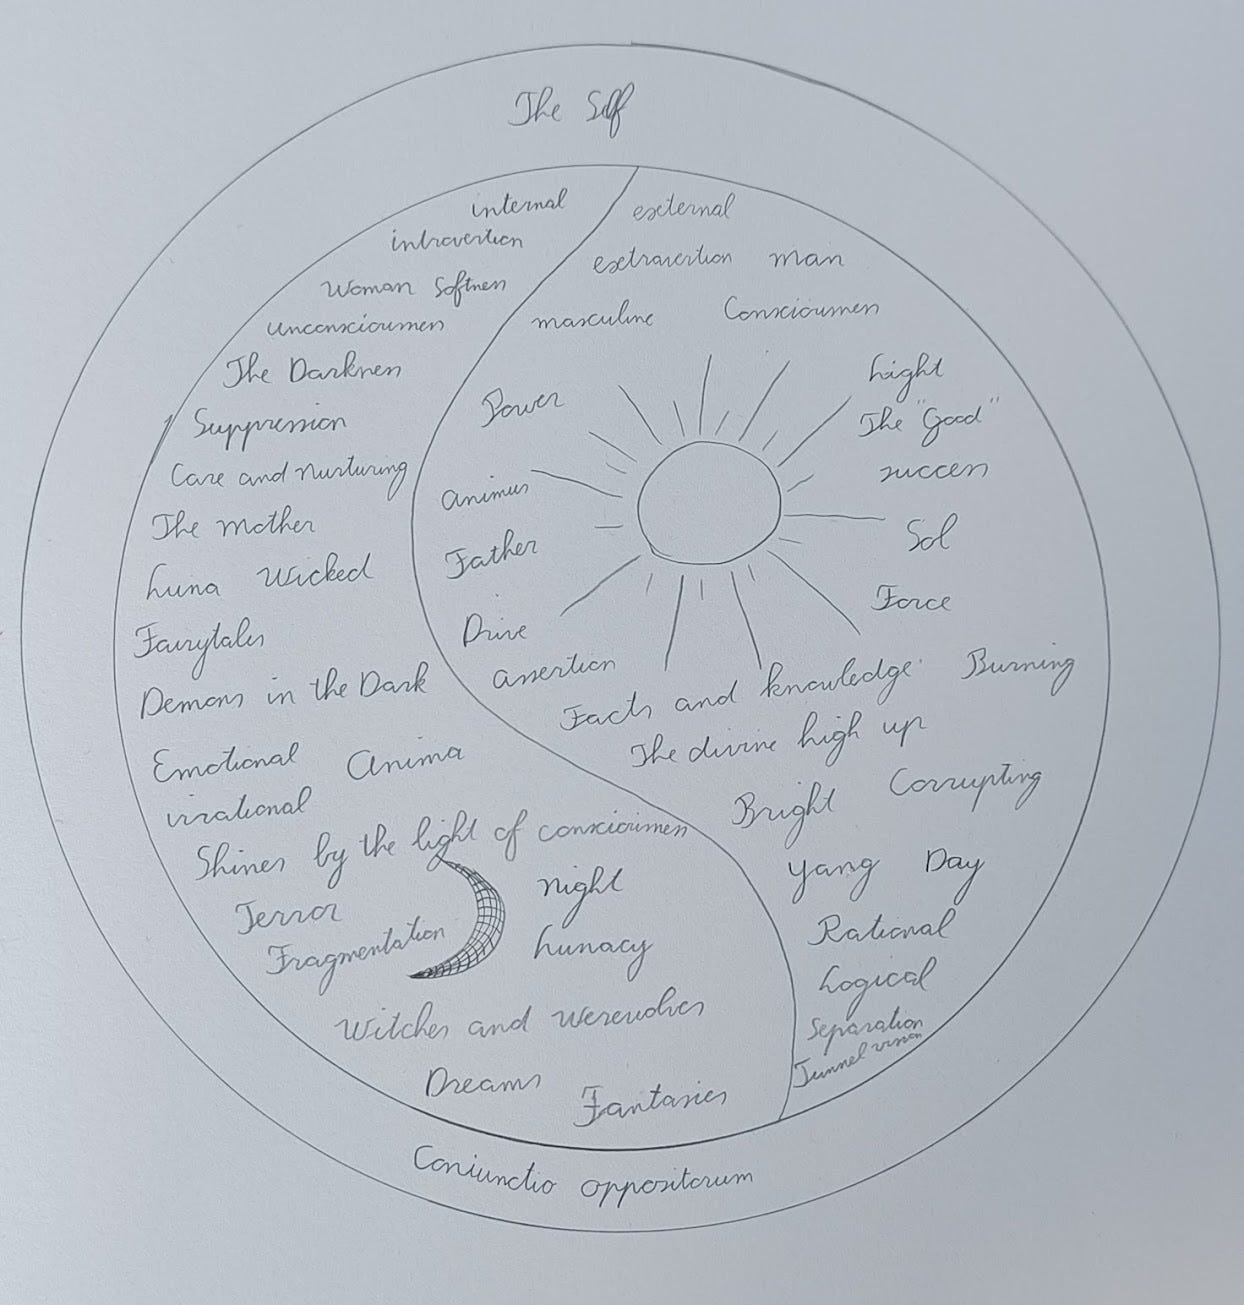 The Self
internal
introvertion
Woman Softness
unconsciousness
The Darkness
Suppression
Care and nurturing
The mother
Luna Wicked
Fairytales
Demons in the Dark
Emotional Anima
irrational
Shines by the light of consciousness
Terror
Fragmentation
night
Lunacy
Witches and werewolves
Dreams
Fantasies
external
extravertion man
masculine Consciousness
Power
Light
The "Good"
success
animus
Sol
Father
Force
Drive
assertion
Facts and knowledge Burning
The divine high up
Bright Corrupting
Yang Day
Rational
Logical
Separation
Tunnel vision
Coniunctio oppositorum